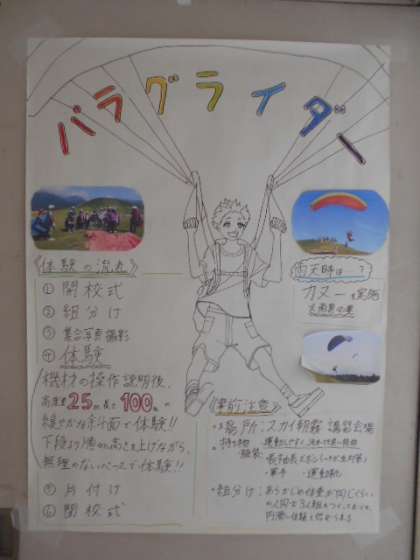 パラグライダー
《体験の流れ》
① 開校式
② 組分け
③ 集合写真撮影
④ 体験
機材の操作説明後、
高度差25m 長さ100mの
緩やかな斜面で体験!!
下段より徐々に高さを上げながら、
無理のないペースで体験!!
⑤ 片付け
⑥ 閉校式
雨天時は…?
カヌーを実施
《事前注意》
場所:スカイ朝霧 講習会場
持ち物
服装:
・軍手 ・運動靴
・組分け:あらかじめ体重が同じくらい